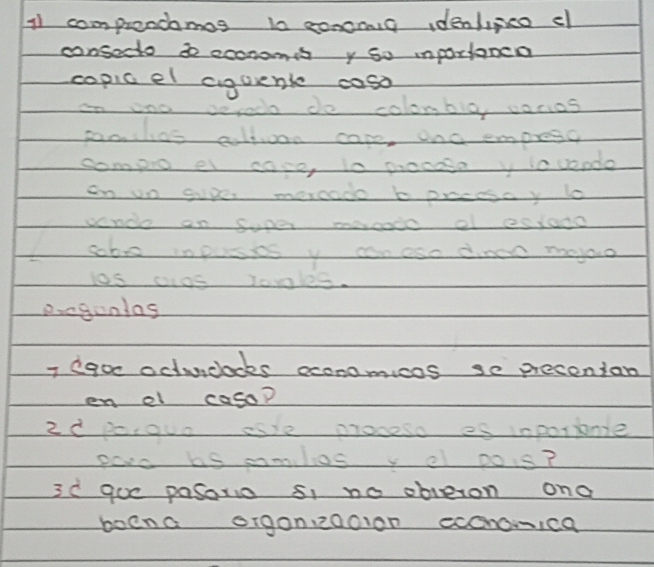 1) comprendamos la economia identifica el
consecto de economia y su inportancia
copia el ciguiente caso
en una vereda de colombia, varias
familias cultivan cafe. una empresa
compra el cafe, lo procesa y lo vende
en un super mercado lo procesa y lo
vende en super mercado el estado
cobra inpustos y con ese dinero mejora
las vias rurales.
preguntas
1 ¿que actividades economicas se presentan
en el caso?
2 ¿ porque este proceso es inportante
para las familias y el pais?
3 ¿ que pasaria si no obieron una
boena organizacion economica